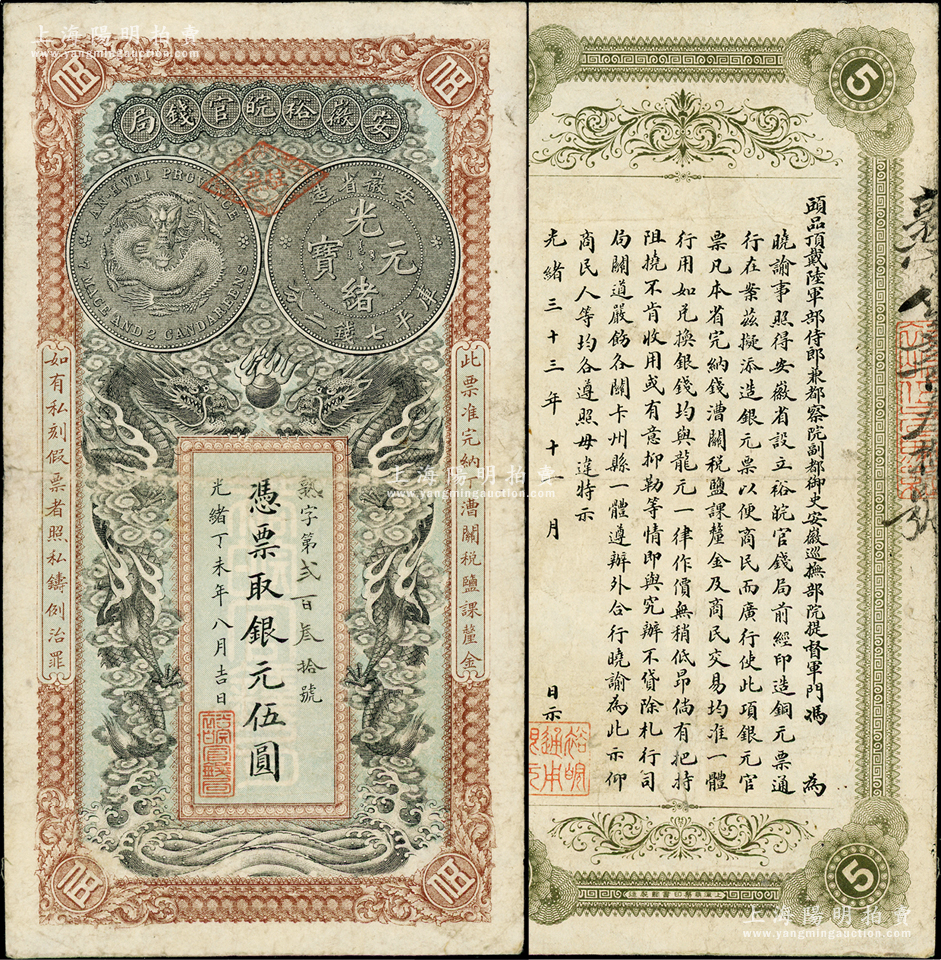 上海陽明拍賣
安徽裕皖官錢局
AN-HWEI PROVINCE
7 MACE AND 2 CANDAREENS
安徽省造
光緒元寶
庫平七錢二分
此票准完納錢漕關稅鹽課釐金
字第貳百叁拾號
憑票取銀元伍圓
光緒丁未年八月吉日
如有私刻假票者照私鑄例治罪
上海陽明拍賣
www.yangmingauction.com
5
頭品頂戴陸軍部侍郎兼都察院副都御史安徽巡撫部院提督軍門馮 為
曉諭事照得安徽省設立裕皖官錢局前經印造銅元票通
行在案茲擬添造銀元票以便商民而廣行使此項銀元官
票凡本省完納錢漕關稅鹽課釐金及商民交易均准一體
行用如兌換銀錢均與龍元一律作價無稍低昂倘有把持
阻撓不肯收用或有意抑勒等情即與究辦不貸除札行司
局關道嚴飭各關卡州縣一體遵辦外合行曉諭為此示仰
商民人等均各遵照毋違特示
光緒三十三年十一月 日示
5
上海陽明拍賣
www.yangmingauction.com